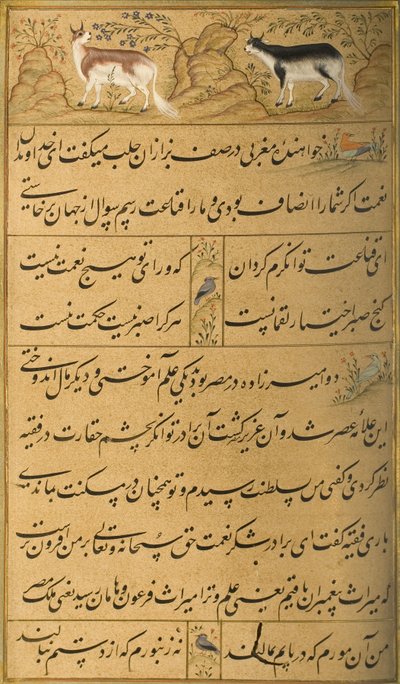 خواهنده مغربی در صف بزازان حلب میگفت ای خداوندان
نعمت اگر شما را انصاف بودی و ما را قناعت رسم سوال از جهان برخاستی
ای قناعت توانگرم گردان که ورای تو هیچ نعمت نیست
کنج صبر اختیار لقمانست هر کرا صبر نیست حکمت نیست
دو میرزاده در مصر بودند یکی علم آموختی و دیگر مال اندوختی
این علامهٔ عصر شد و آن عزیز گشت آن برادر توانگر بچشم حقارت در فقیه
نظر کردی و گفتی من بسلطنت رسیدم و تو همچنان در مسکنت بماندی
باری فقیه گفت ای برادر شکر نعمت حق سبحانه و تعالی بر من افزون است
که میراث پیغمبران یافتم یعنی علم و ترا میراث فرعون و هامان رسید یعنی ملک مصر
من آن مورم که در پایم بمالند نه زنبورم که از دستم بنالند